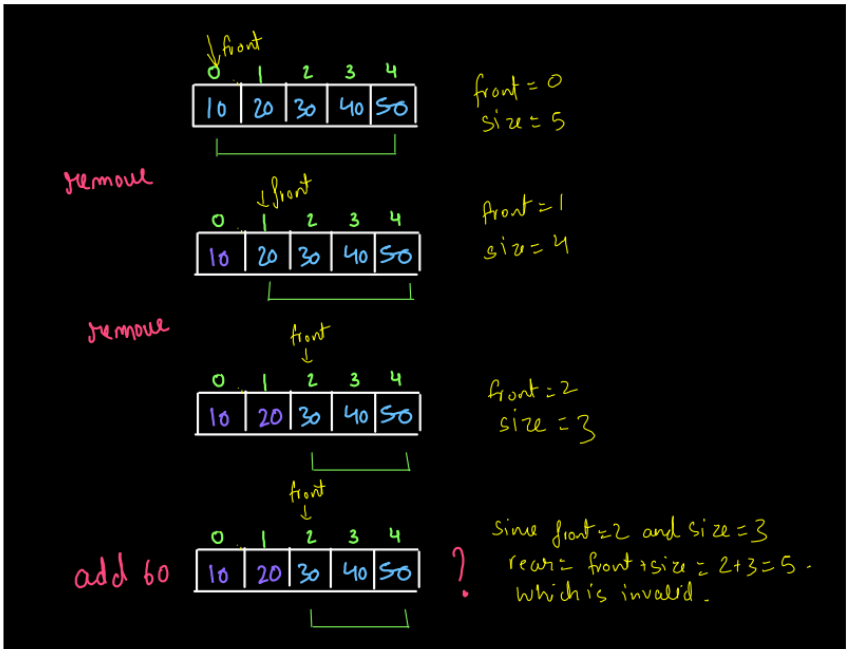 front
0 1 2 3 4
10 20 30 40 50
front = 0
size = 5
remove
front
0 1 2 3 4
10 20 30 40 50
front = 1
size = 4
remove
front
0 1 2 3 4
10 20 30 40 50
front = 2
size = 3
front
0 1 2 3 4
add 60
10 20 30 40 50
?
since front = 2 and size = 3
rear = front + size = 2+3 = 5.
which is invalid.